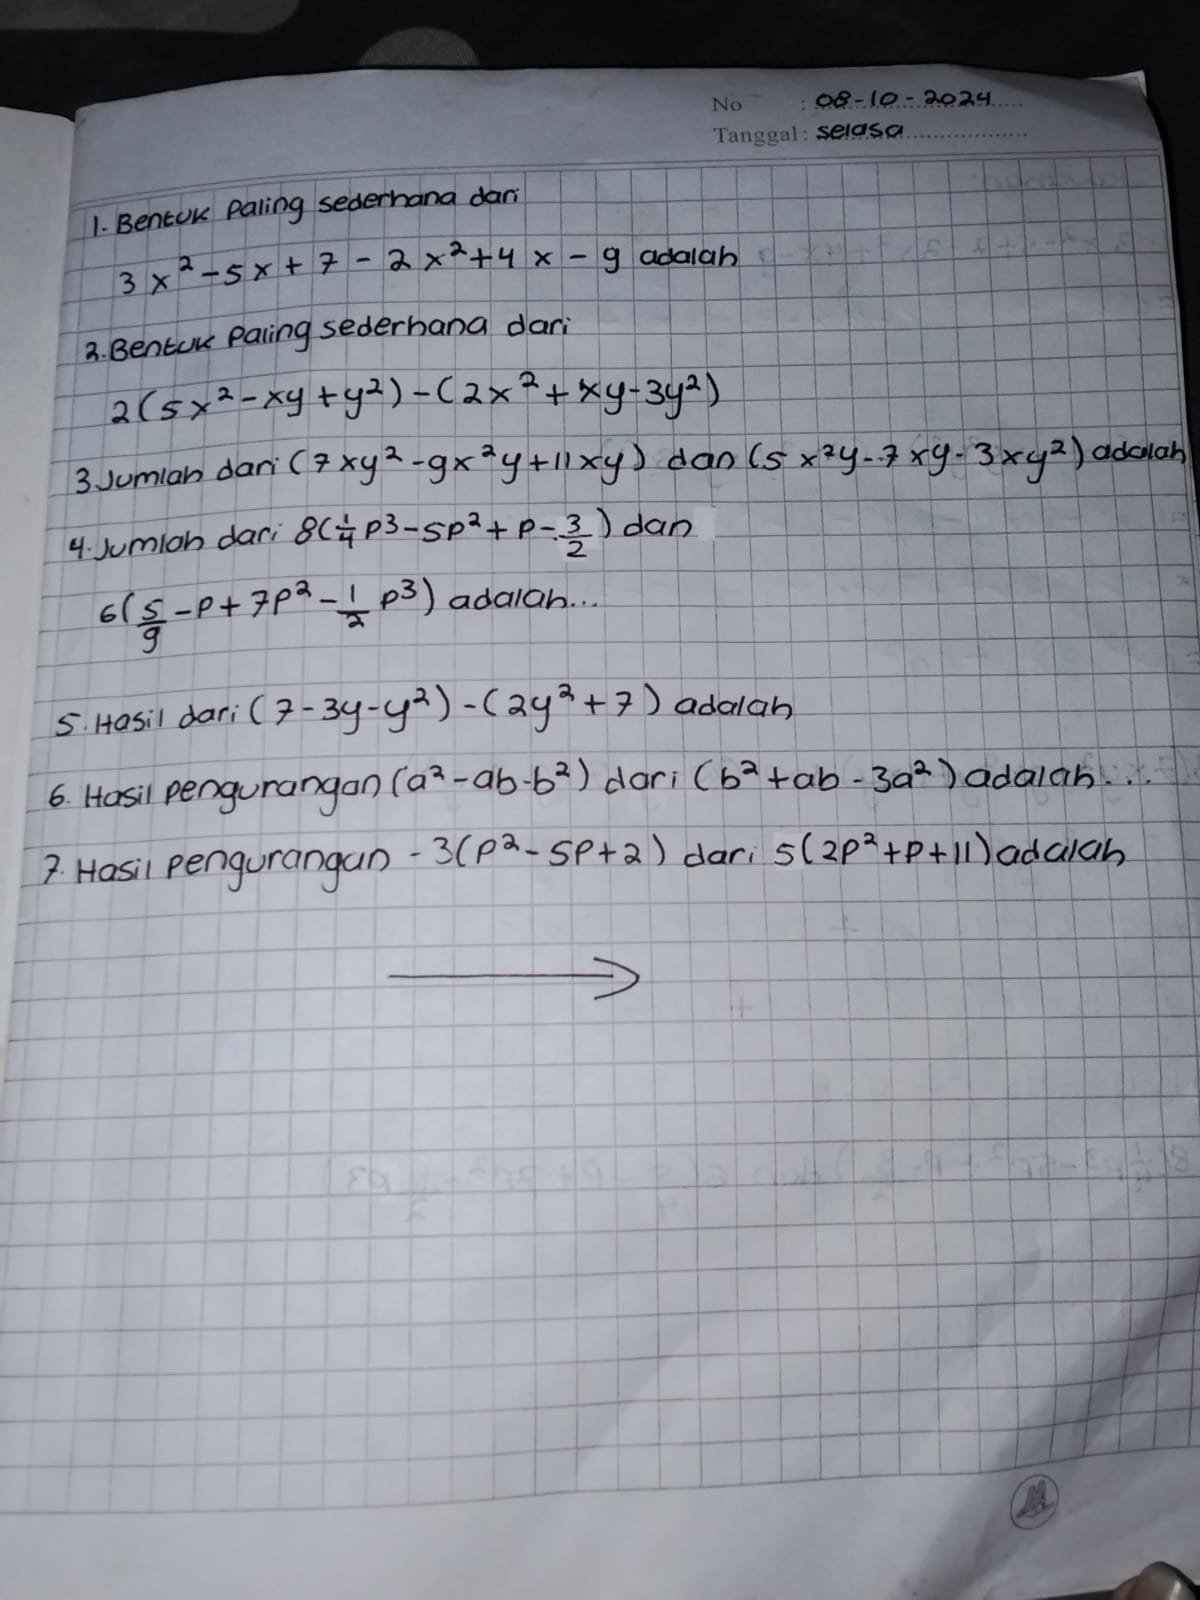 No : 08-10-2024
Tanggal : selasa
1. Bentuk Paling sederhana dari
3x² - 5x + 7 - 2x² + 4x - 9 adalah
2. Bentuk Paling sederhana dari
2(5x² - xy + y²) - (2x² + xy - 3y²)
3 Jumlah dari (7xy² - 9x²y + 11xy) dan (5x²y - 7xy - 3xy²) adalah
4. Jumlah dari 8(1/4 p³ - 5p² + p - 3/2) dan
6(5/9 - p + 7p² - 1/2 p³) adalah...
5. Hasil dari (7 - 3y - y²) - (2y² + 7) adalah
6. Hasil pengurangan (a² - ab - b²) dari (b² + ab - 3a²) adalah...
7. Hasil pengurangan - 3(p² - 5p + 2) dari 5(2p² + p + 11) adalah